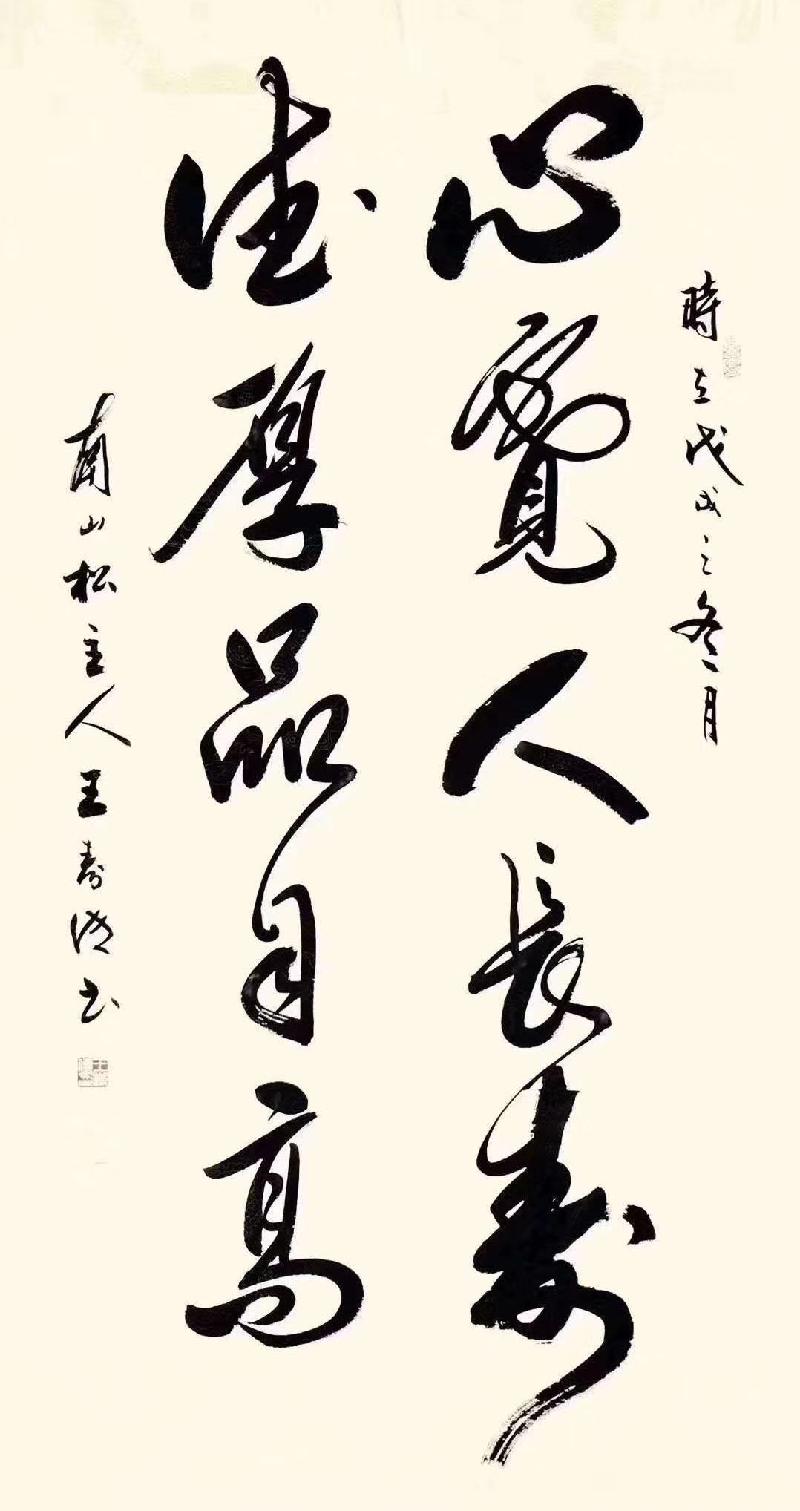 時在戊戌之冬月
心寬人長壽
德厚品自高
南山松主人王寿书